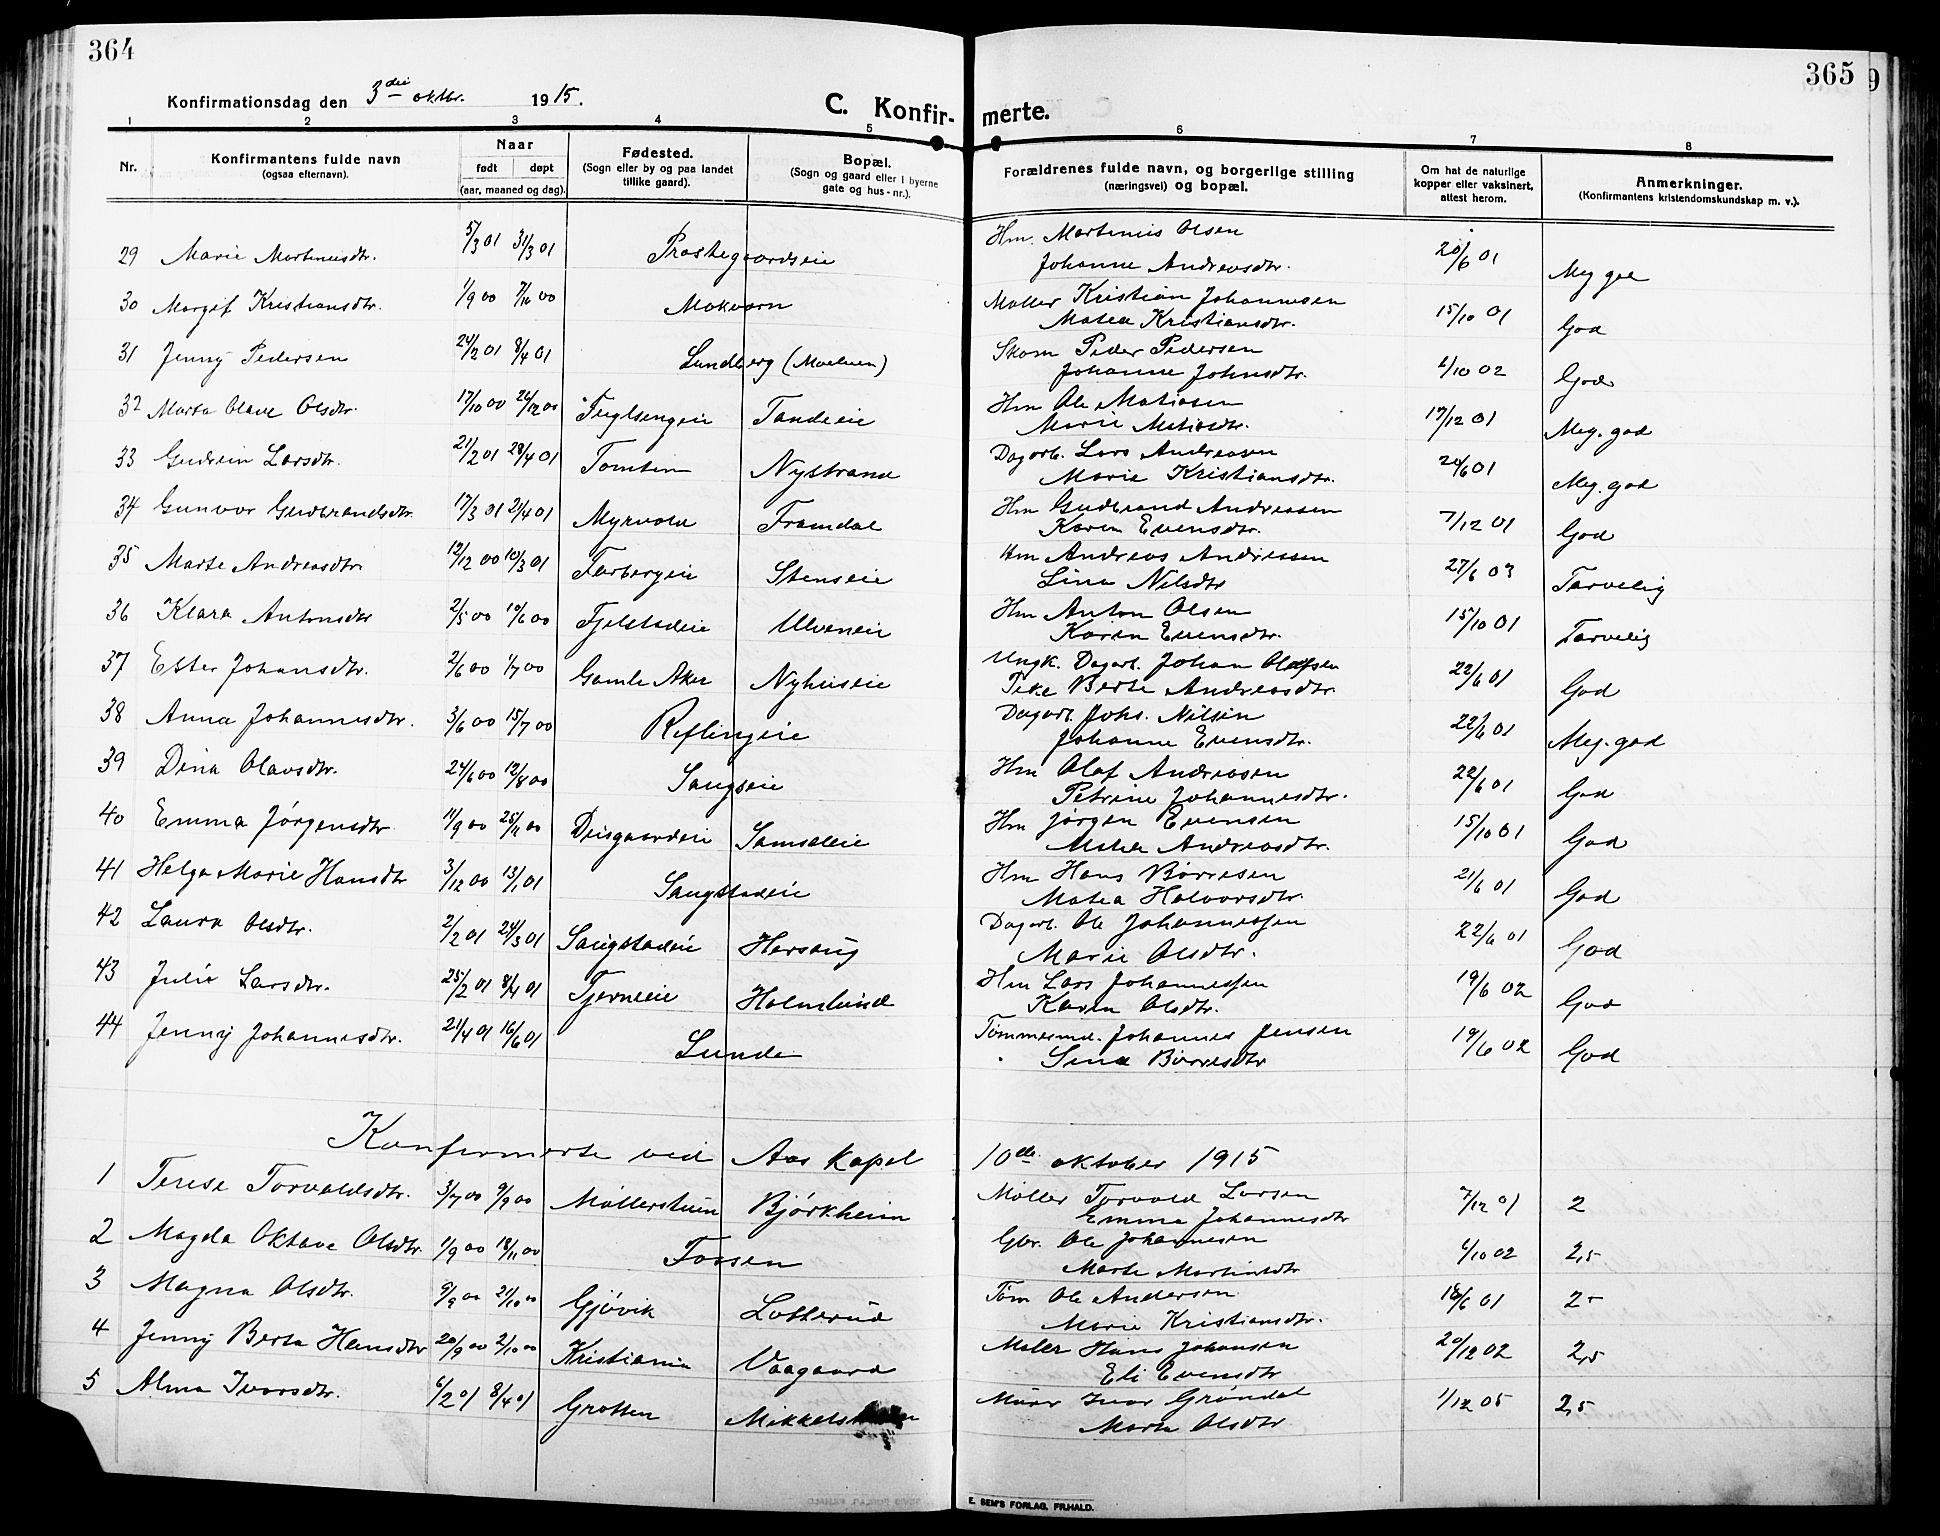 364
365
Konfirmationsdag den 3die oktbr. 1915.
C. Konfir-merte.
1 2 3 4 5 6 7 8
Nr. Konfirmantens fulde navn (ogsaa efternavn). Naar født døpt (aar, maaned og dag). Fødested. (Sogn eller by og paa landet tillike gaard). Bopæl. (Sogn og gaard eller i byerne gate og hus-nr.). Forældrenes fulde navn, og borgerlige stilling (næringsvei) og bopæl. Om hat de naturlige kopper eller vaksinert, attest herom. Anmerkninger. (Konfirmantens kristendomskundskap m. v.).
29 Marie Marteniusdtr. 5/3 01 31/3 01 Prestegaardseie Hm. Martenius Olsen 20/6 01 Meg god
Johanne Andreasdtr.
30 Margit Kristiansdtr. 1/9 00 7/10 00 Mokvarn Møller Kristian Johannesen 15/10 01 God
Matea Kristiansdtr.
31 Jenny Pedersen 24/2 01 8/4 01 Lundberg (Moelven) Skom Peder Pedersen 6/10 02 God
Johanne Johnsdtr.
32 Marta Olave Olsdtr. 17/10 00 26/12 00 Fuglsengeie Tandeeie Hm Ole Matiasen 17/12 01 Meg. god
Marie Matiasdtr.
33 Gudrun Larsdtr. 21/2 01 28/4 01 Tomten Nystrand Dagarb. Lars Andreasen 20/6 01 Meg. god
Marie Kristiansdtr.
34 Gunvor Gudbrandsdtr. 17/3 01 21/4 01 Myrvold Framdal Hm Gudbrand Andreasen 7/12 01 God
Karen Evensdtr.
35 Marte Andreasdtr 12/12 00 10/3 01 Farbergeie Stenseie Hm Andreas Andreasen 27/6 03 Tarvelig
Lina Nilsdtr
36 Klara Antonsdtr 2/5 00 10/6 00 Fjelstadeie Ulveneie Hm Anton Olsen 15/10 01 Tarvelig
Karen Evensdtr.
37 Ester Johansdtr. 2/6 00 1/7 00 Gamle Aker Nyhuseie Ungk. Dagarb. Johan Olafsen 22/6 01 God
Pike Berte Andreasdtr.
38 Anna Johannesdtr. 3/6 00 15/7 00 Reflingeie Dagarb. Johs. Nilsen 22/6 01 Meg. god
Johanne Evensdtr.
39 Dina Olavsdtr. 24/6 00 12/8 00 Saugseie Hm Olaf Andreasen 22/6 01 God
Petrine Johannesdtr.
40 Emma Jørgensdtr 11/9 00 25/11 00 Disgaardeie Samseleie Hm Jørgen Evensen 15/10 01 God
Matea Andreasdtr.
41 Helga Marie Hansdtr 3/12 00 13/1 01 Saugstadeie Hm Hans Børresen 21/6 01 God
Matea Halvorsdtr.
42 Laura Olsdtr. 2/2 01 24/3 01 Saugstadeie Harsaug Dagarb. Ole Johannessen 22/6 01 God
Marie Olsdtr.
43 Julie Larsdtr. 25/2 01 8/4 01 Tjerneeie Holmlund Hm Lars Johannessen 19/6 02 God
Karen Olsdtr.
44 Jenny Johannesdtr. 21/4 01 16/6 01 Lunde Tømmermd. Johannes Jensen 19/6 02 God
Lina Børresdtr
Konfirmerte ved Aas kapel 10de oktober 1915
1 Terese Torvaldsdtr. 3/7 00 9/9 00 Møllerstuen Bjørkheim Møller Torvald Larsen 7/12 01 2
Emma Johannesdtr
2 Magda Oktave Olsdtr. 1/9 00 18/11 00 Fossen Gbr. Ole Johannesen 6/10 02 2,5
Marte Martinsdtr
3 Magna Olsdtr. 9/9 00 21/10 00 Gjøvik Lotterud Tøm Ole Andersen 18/6 01 2-
Marie Kristiansdtr.
4 Jenny Berta Hansdtr 20/9 00 2/10 00 Kristiania Vaagaard Maler Hans Johansen 20/12 02 2,5
Eli Evensdtr
5 Alma Ivarsdtr. 6/2 01 8/4 01 Grotten Murer Ivar Grøndal 1/12 05 2,5
Marta Olsdtr
E. SEM'S FORLAG, FR.HALD.